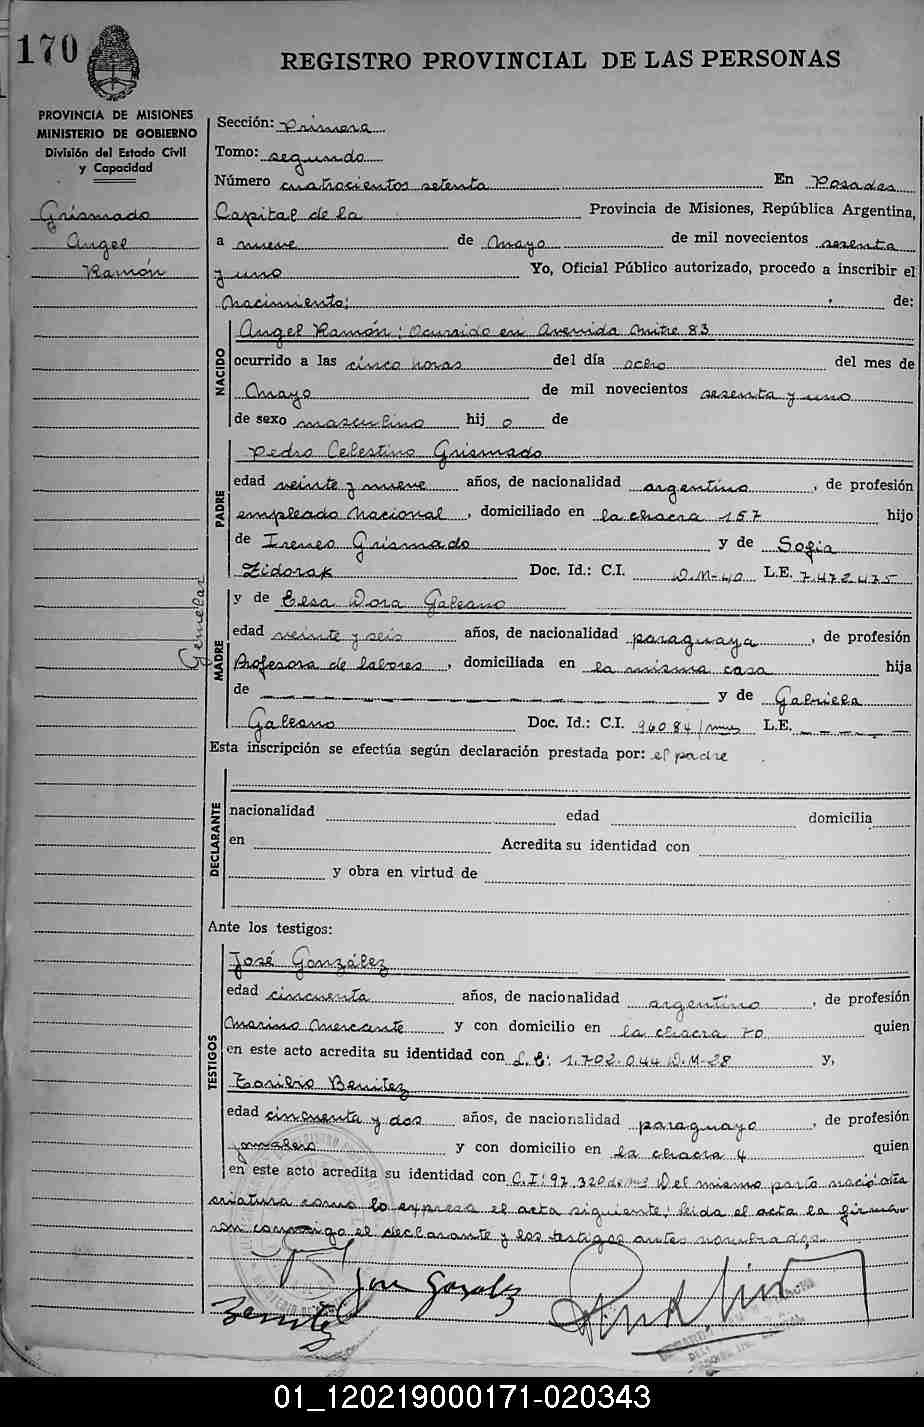 170
REGISTRO PROVINCIAL DE LAS PERSONAS
PROVINCIA DE MISIONES
MINISTERIO DE GOBIERNO
División del Estado Civil
y Capacidad
Grismado
Angel
Ramón
Gemelar
Sección: Primera
Tomo: segundo
Número cuatrocientos setenta En Posadas
Capital de la Provincia de Misiones, República Argentina,
a nueve de Mayo de mil novecientos sesenta
y uno Yo, Oficial Público autorizado, procedo a inscribir el
Nacimiento; de:
NACIDO
Angel Ramón; Ocurrido en Avenida Mitre 83
ocurrido a las cinco horas del día ocho del mes de
Mayo de mil novecientos sesenta y uno
de sexo masculino hij o de
PADRE
Pedro Celestino Grismado
edad veinte y nueve años, de nacionalidad argentino, de profesión
empleado Nacional, domiciliado en la chacra 157 hijo
de Ireneo Grismado y de Sofia
Zidorak Doc. Id.: C.I. D.M-40 L.E. 7.472.475
MADRE
y de Elsa Dora Galeano
edad veinte y seis años, de nacionalidad paraguaya, de profesión
Profesora de labores, domiciliada en la misma casa hija
de y de Gabriela
Galeano Doc. Id.: C.I. 96084/ L.E.
Esta inscripción se efectúa según declaración prestada por: el padre
DECLARANTE
nacionalidad edad domicilia
en Acredita su identidad con
y obra en virtud de
Ante los testigos:
TESTIGOS
José González
edad cincuenta años, de nacionalidad argentino, de profesión
Marino Mercante y con domicilio en la chacra 70 quien
en este acto acredita su identidad con L.E: 1.702.044 D.M-28 y,
Benitez
edad cincuenta y dos años, de nacionalidad paraguayo, de profesión
jornalero y con domicilio en la chacra 4 quien
en este acto acredita su identidad con C.I: 97.320 del mismo parto nació otra
criatura como lo expresa el acta siguiente; leida el acta la firma-
ron conmigo el declarante y los testigos antes nombrados.
Jose Gonzalez
Benitez
01_120219000171-020343